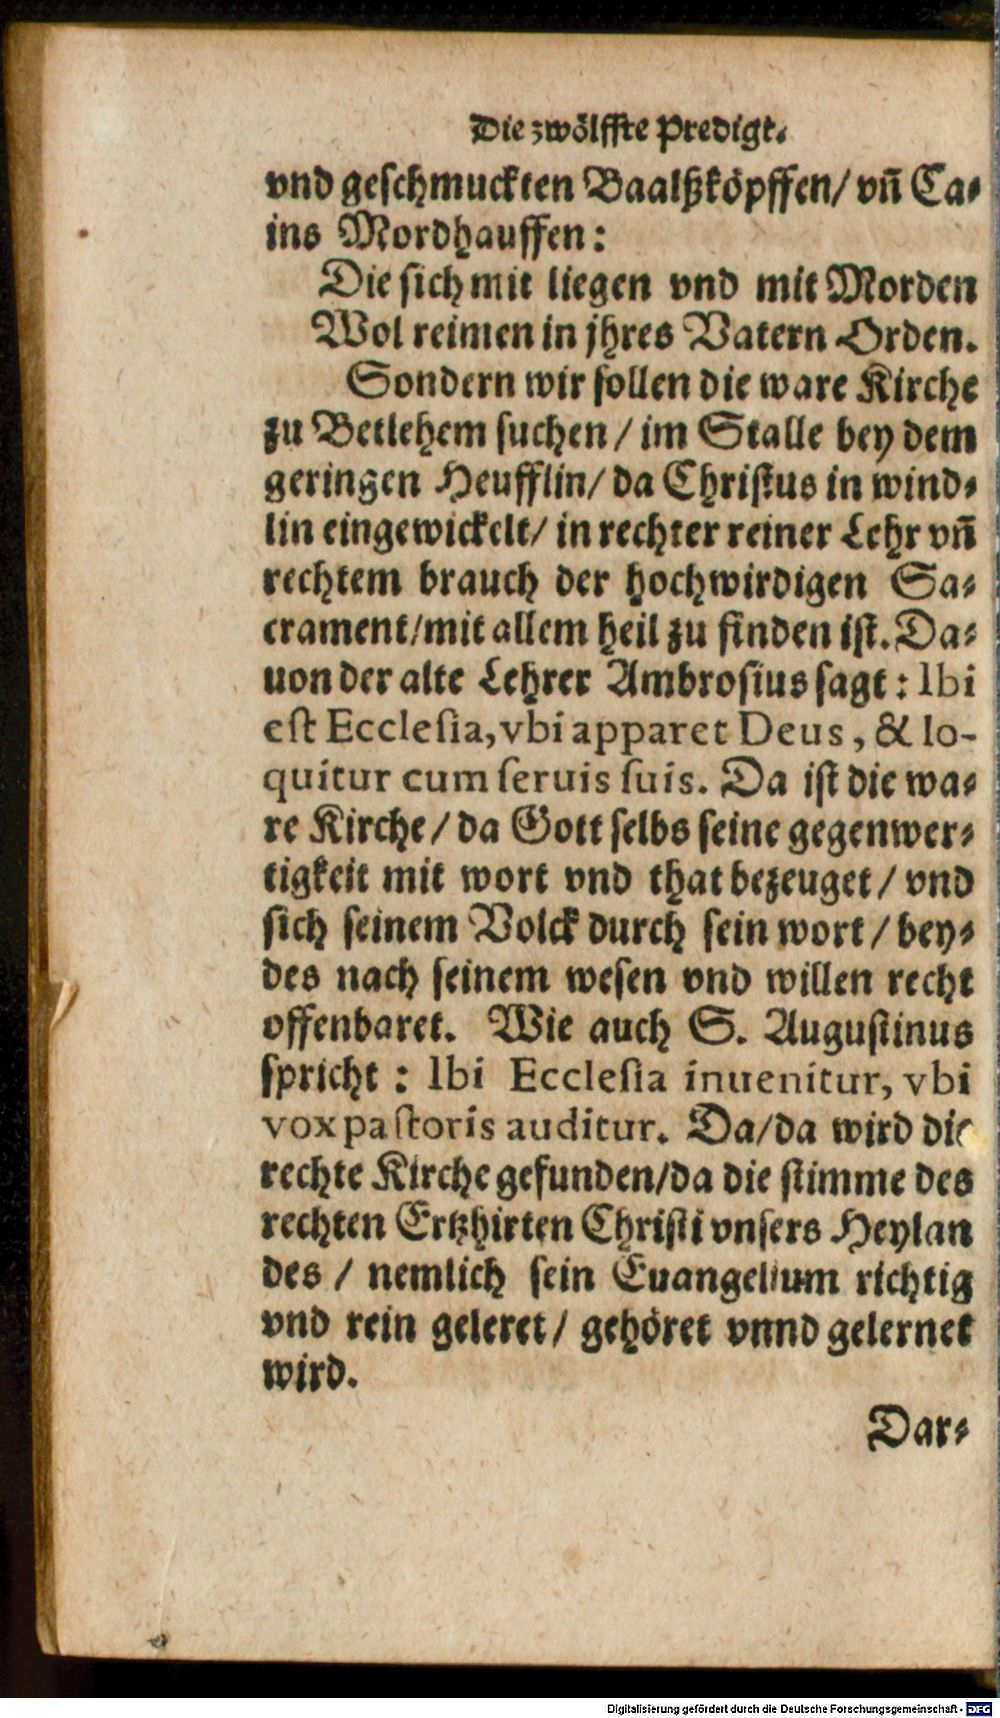 Die zwölffte Predigt.
vnd geschmuckten Baalßköpffen/ vñ Ca-
ins Mordhauffen:
Die sich mit liegen vnd mit Morden
Wol reimen in jhres Vatern Orden.
Sondern wir sollen die ware Kirche
zu Betlehem suchen / im Stalle bey dem
geringen Heufflin/ da Christus in wind-
lin eingewickelt/ in rechter reiner Lehr vñ
rechtem brauch der hochwirdigen Sa-
crament/mit allem heil zu finden ist. Da-
uon der alte Lehrer Ambrosius sagt: Ibi
est Ecclesia, vbi apparet Deus, & lo-
quitur cum seruis suis. Da ist die wa-
re Kirche / da Gott selbs seine gegenwer-
tigkeit mit wort vnd that bezeuget / vnd
sich seinem Volck durch sein wort / bey-
des nach seinem wesen vnd willen recht
offenbaret. Wie auch S. Augustinus
spricht : Ibi Ecclesia inuenitur, vbi
vox pastoris auditur. Da/da wird die
rechte Kirche gefunden/da die stimme des
rechten Ertzhirten Christi vnsers Heylan
des / nemlich sein Euangelium richtig
vnd rein geleret/ gehöret vnnd gelernet
wird.
Dar-
Digitalisierung gefördert durch die Deutsche Forschungsgemeinschaft - DFG